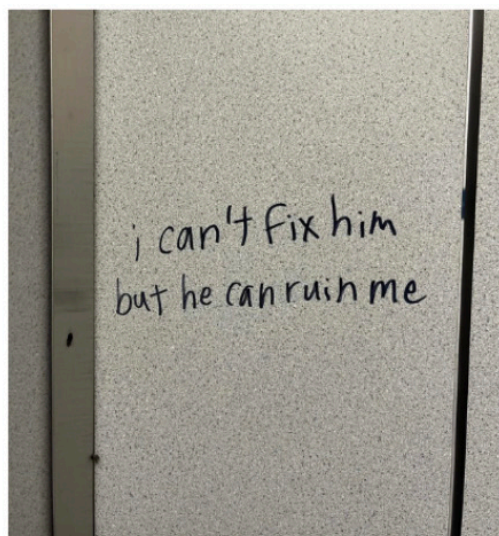 i can't fix him
but he can ruin me